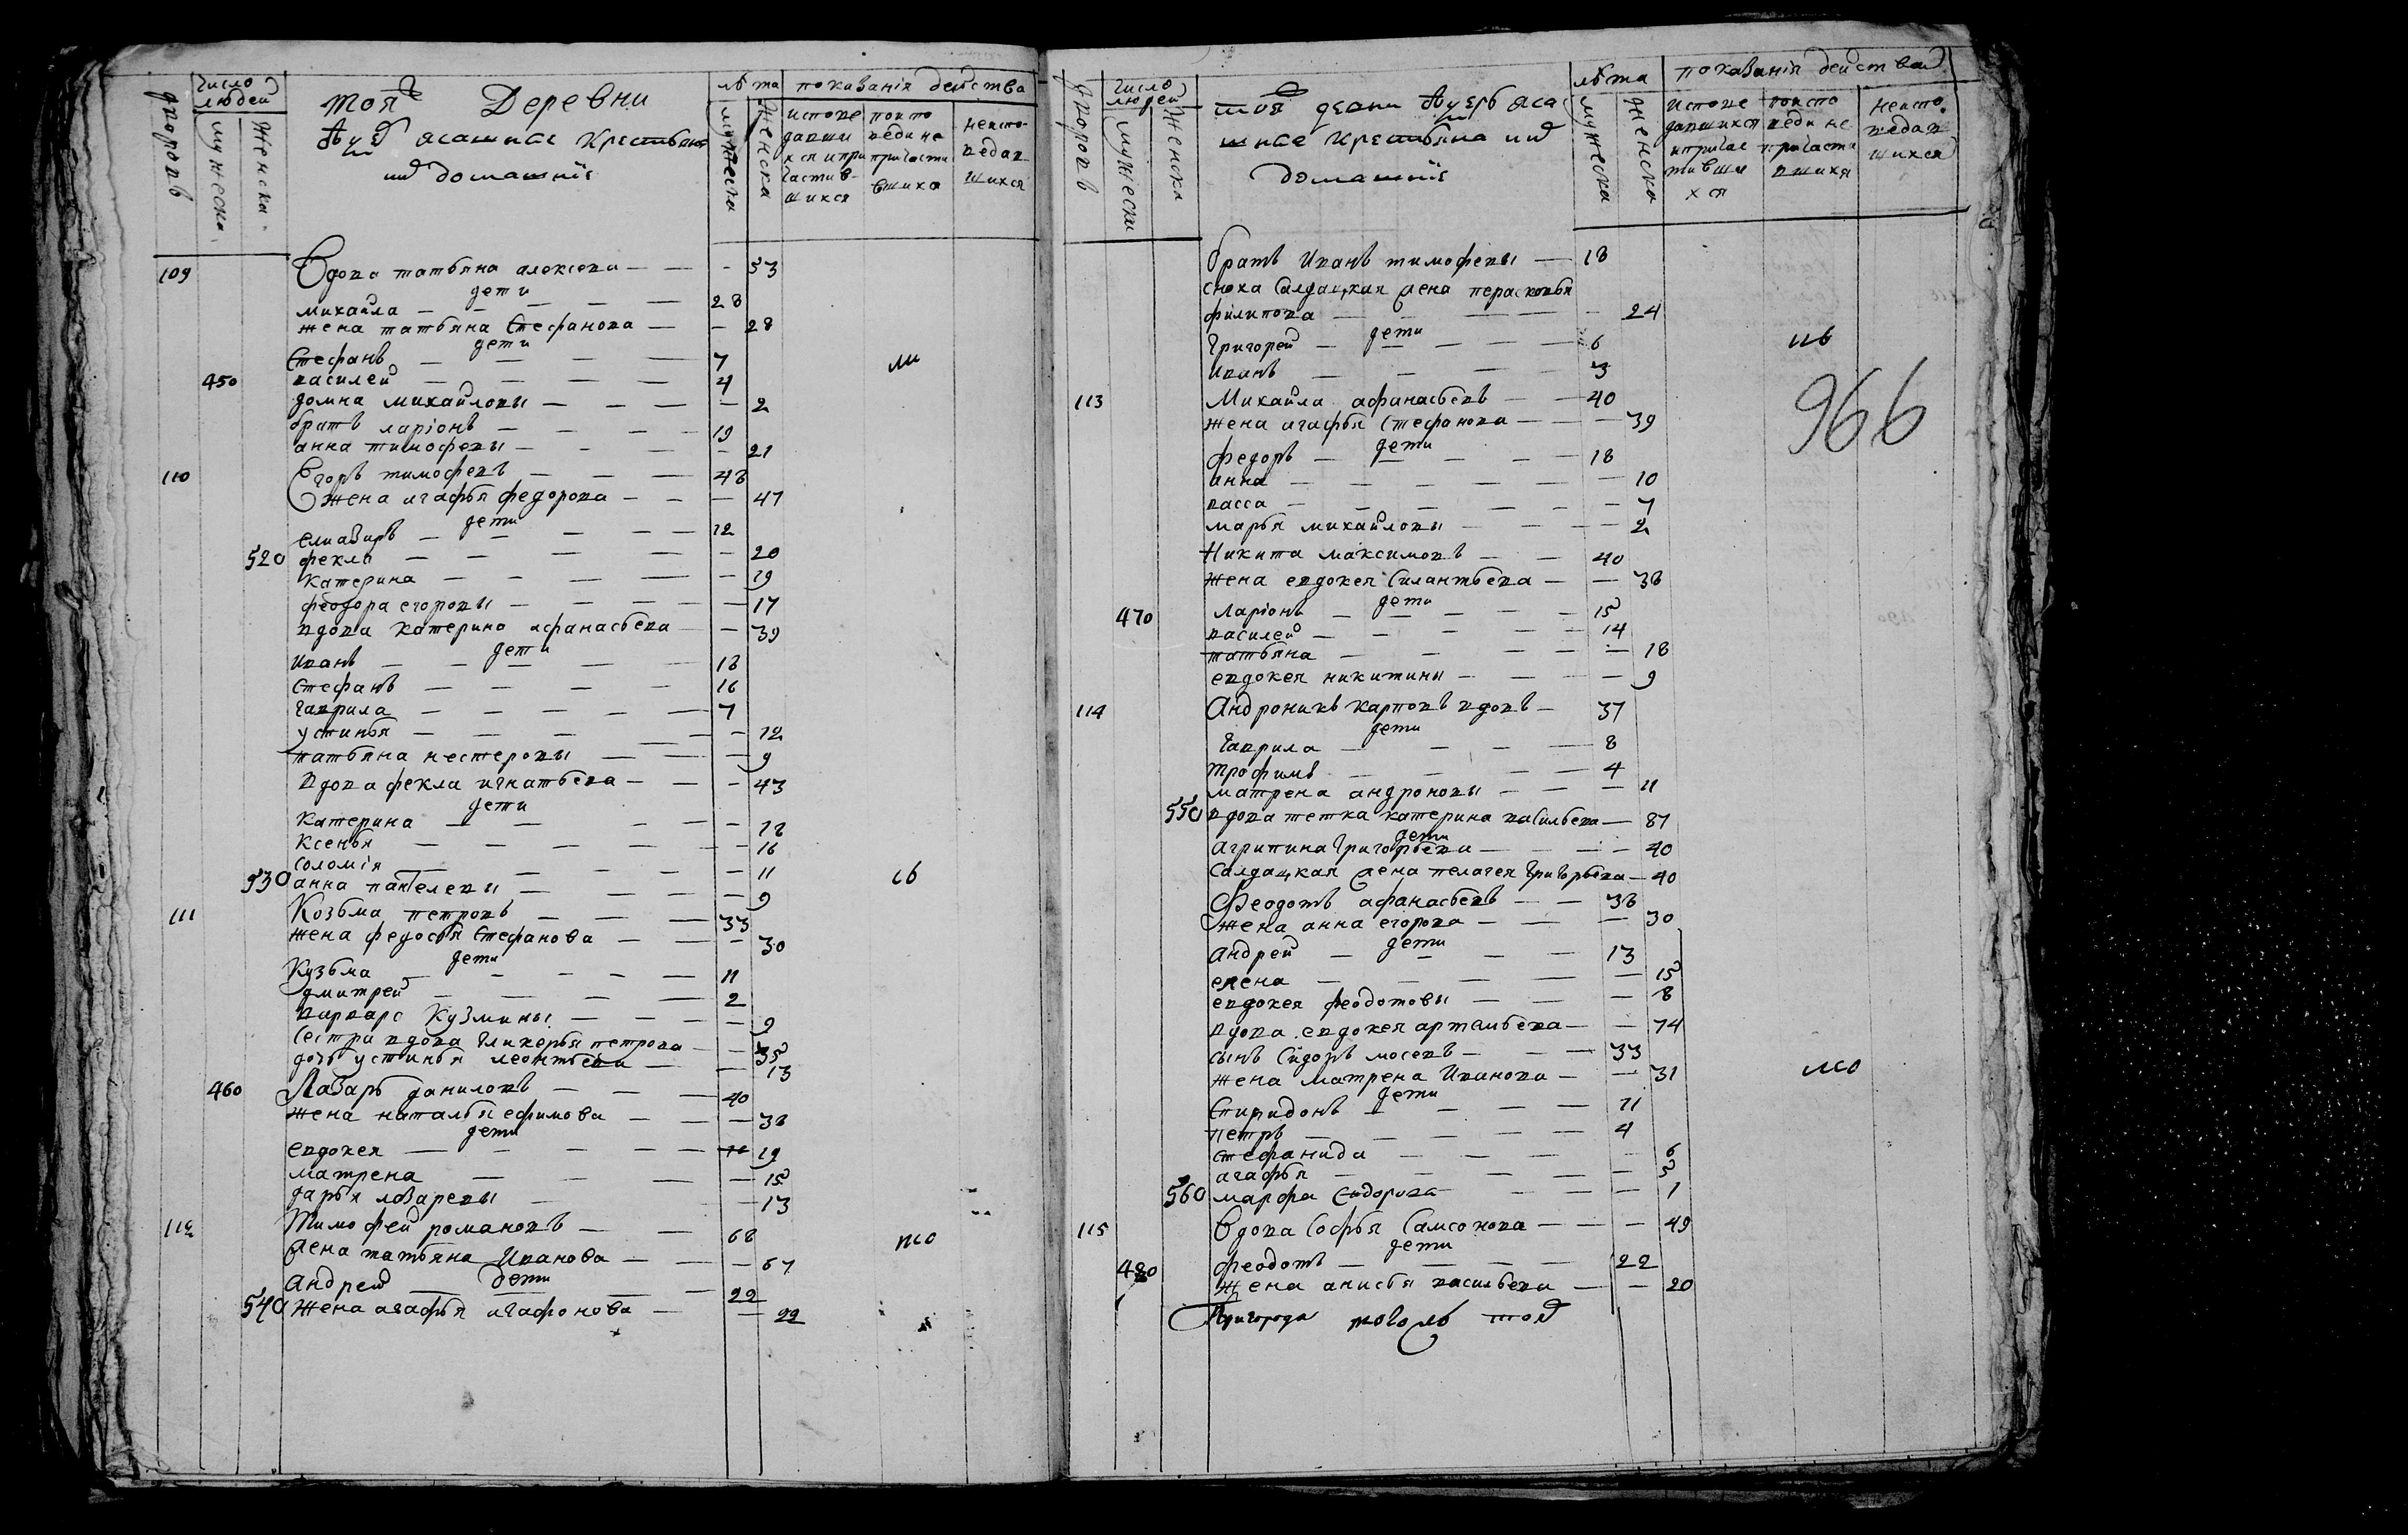 число людей
дворовъ
мужеска
женска
тояж Деревни
ясашные крестьяне
ихъ домашніе
лѣта
мужеска
женска
показанія действа
исповедавшихся и причастившихся
по исповеди не причастившихся
неисповедавшихся
109 Вдова татьяна алексева — 53
дети
михайла — 28
жена татьяна Стефанова — 28
дети
Стефанъ — 7
450 василей — 4
домна михайловы — 2
братъ ларіонъ — 19
анна тимофевы — 21
110 Егоръ тимофевъ — 48
жена агафья федорова — 47
дети
елиазаръ — 12
520 фекла — 20
катерина — 19
феодора егоровы — 17
вдова катерина афанасьева — 39
дети
иванъ — 18
Стефанъ — 16
гаврила — 7
устинья — 12
татьяна нестеровы — 9
вдова фекла игнатьева — 43
дети
катерина — 18
ксенья — 16
соломія — 11
530 анна пантелевы — 9
111 Козьма петровъ — 33
жена федосья Стефанова — 30
дети
Кузьма — 11
дмитрей — 2
варвара Кузмины — 9
сестра вдова гликерья петрова — 35
дочь устинья леонтьева — 13
460 Лазарь даниловъ — 40
жена наталья ефимова — 38
дети
евдокея — 19
матрена — 15
дарья лазаревы — 13
112 Тимофей романовъ — 68
жена татьяна Иванова — 67
дети
андрей — 22
540 жена агафья агафонова — 22
число людей
дворовъ
мужеска
женска
тояж ясашные крестьяна ихъ
домашніе
лѣта
мужеска
женска
показанія действа
исповедавшихся и причастившихся
по исповеди не причастившихся
неисповедавшихся
братъ Иванъ тимофевы — 18
сноха Салдацкая жена перасковья
филипова — 24
дети
Григорей — 6
иванъ — 3
966
113 Михайла афанасьевъ — 40
жена агафья Стефанова — 39
дети
федоръ — 18
анна — 10
васса — 7
марья михайловы — 2
Никита максимовъ — 40
жена евдокея Силантьева — 38
дети
470 ларіонъ — 15
василей — 14
татьяна — 18
евдокея никитины — 9
114 Андроникъ карповъ вдовъ — 37
дети
гаврила — 8
трофимъ — 4
матрена андроновы — 11
550 вдова тетка катерина васильева — 87
дети
агрипина Григорьева — 40
Салдацкая жена пелагея Григорьева — 40
Феодотъ афанасьевъ — 38
жена анна егорова — 30
дети
андрей — 13
елена — 15
евдокея феодотовы — 8
вдова евдокея артемьева — 74
сынъ Сидоръ мосевъ — 33
жена матрена Иванова — 31
дети
Спиридонъ — 11
петръ — 4
Стефанида — 6
агафья — 5
560 марфа Сидорова — 1
115 Вдова Софья Самсонова — 49
дети
480 феодотъ — 22
жена анисья васильева — 20
Пригорода